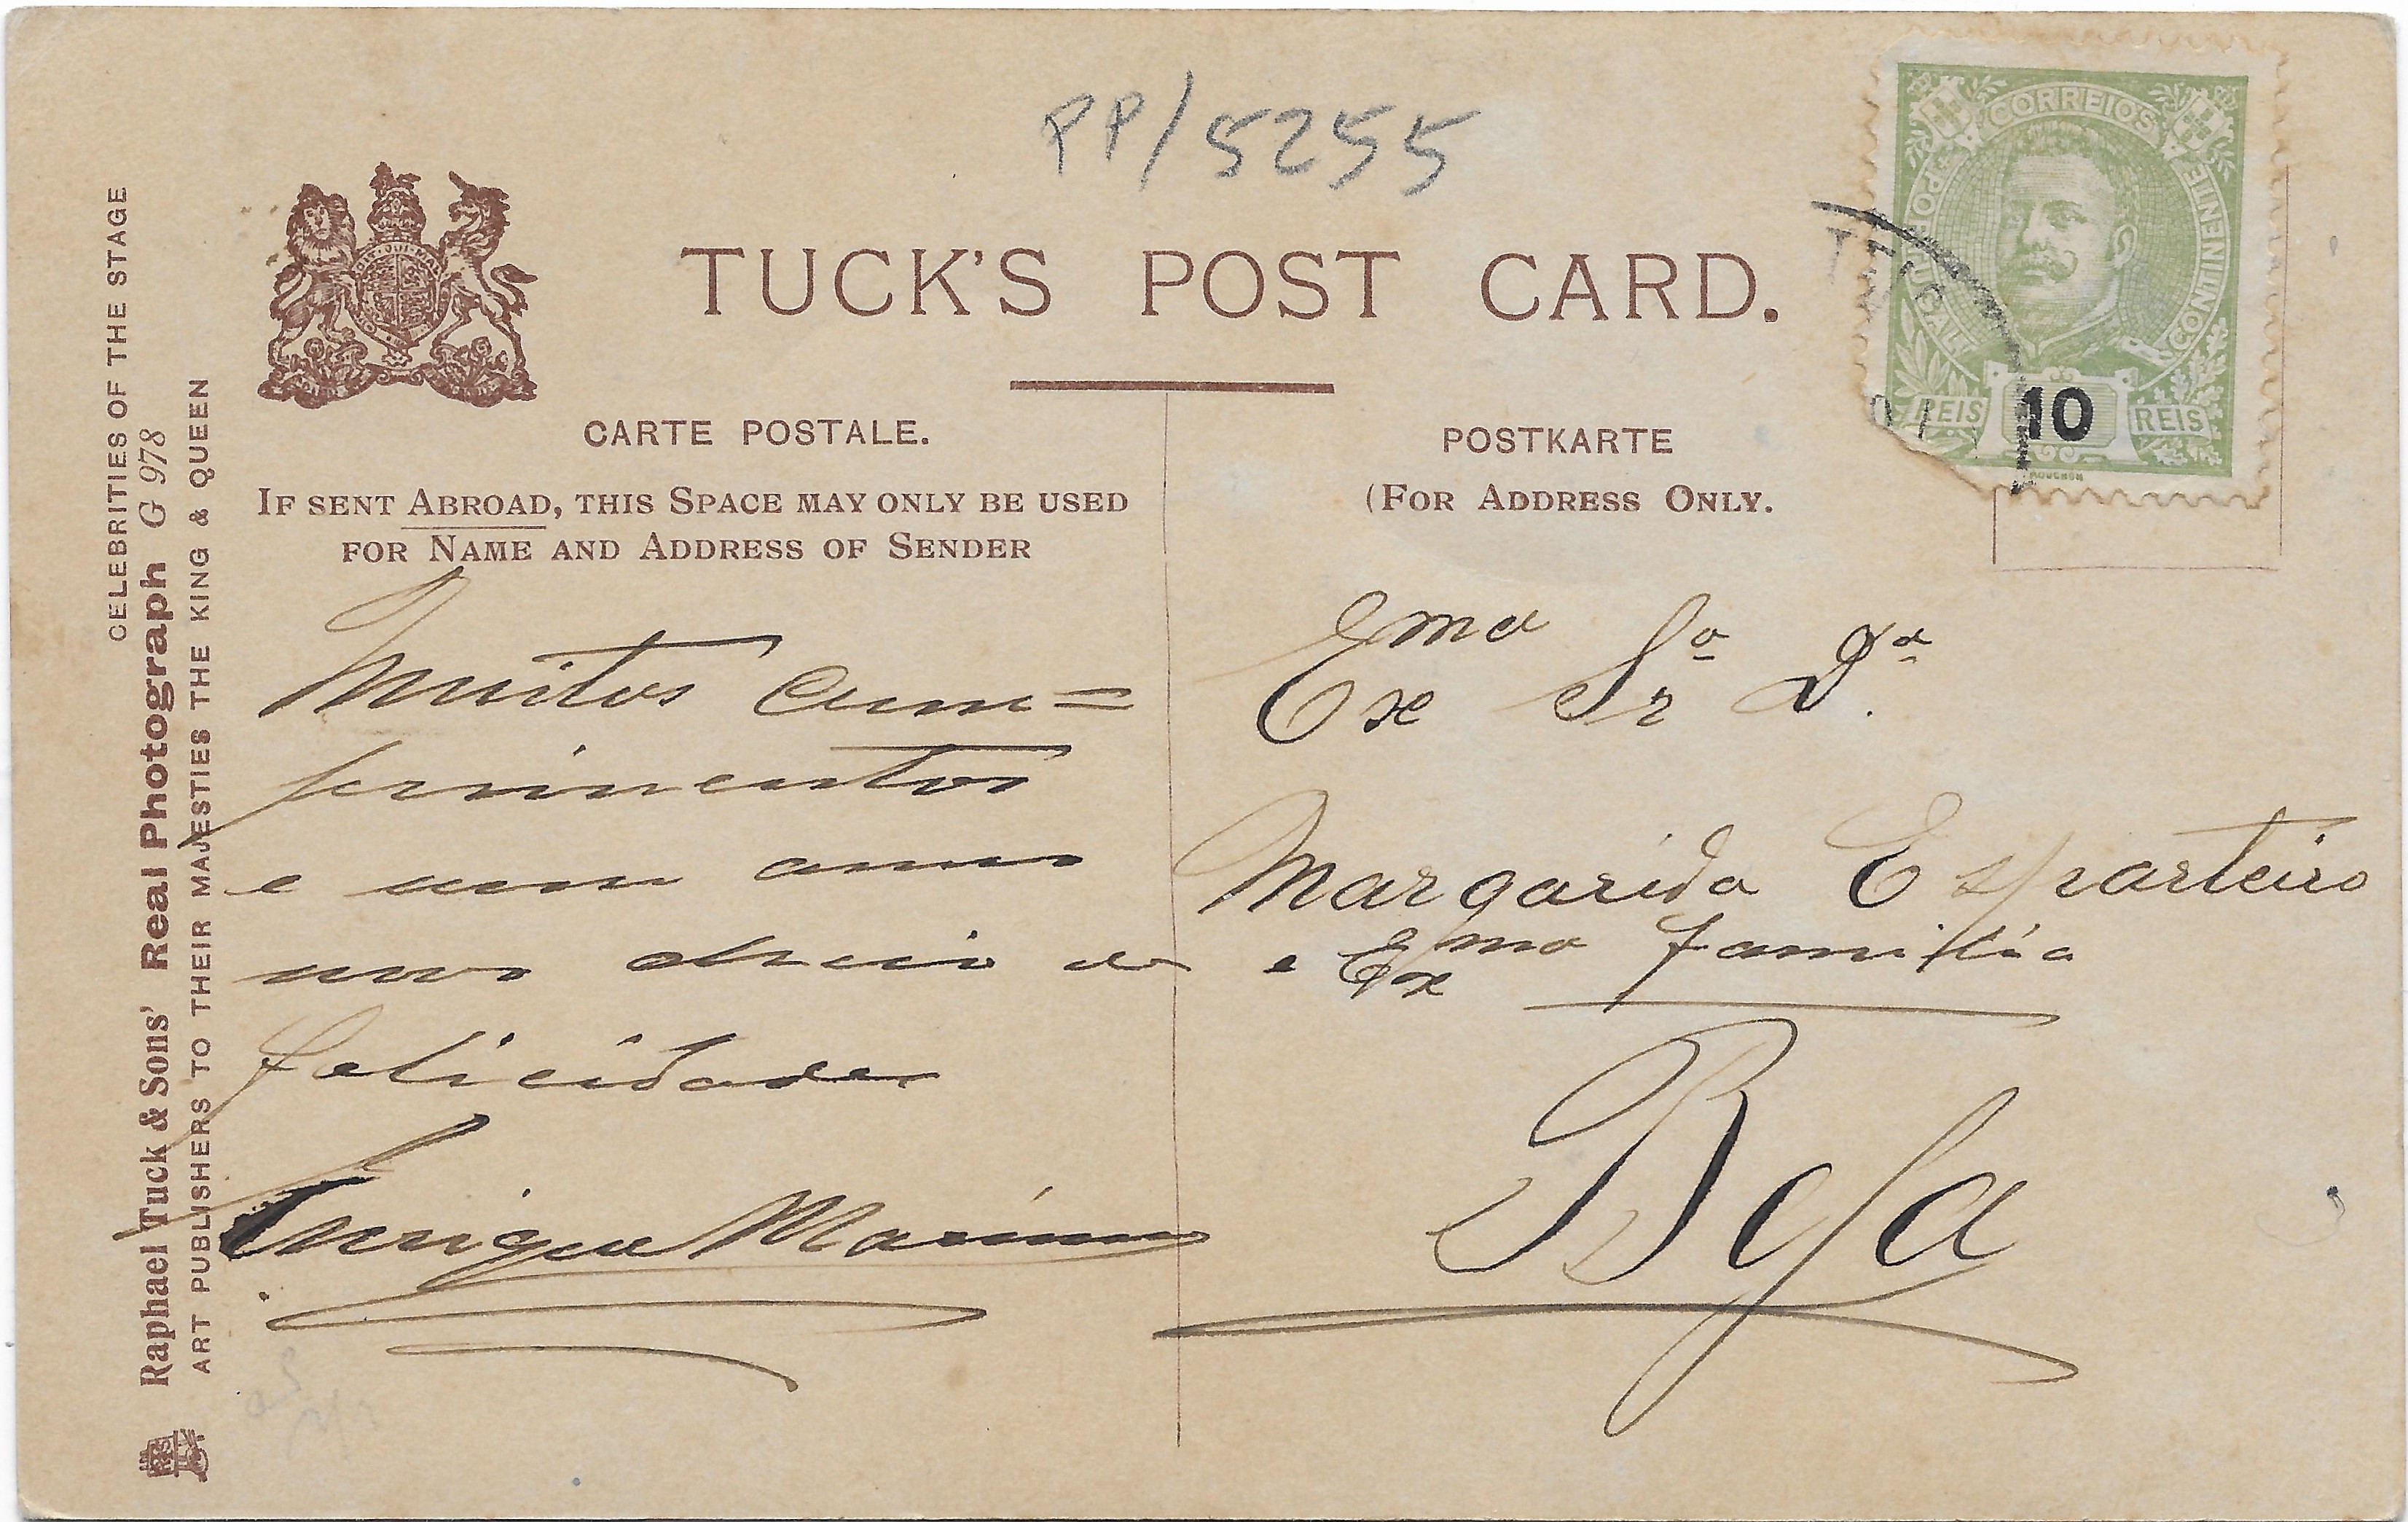 PP/5255
TUCK'S POST CARD.
CARTE POSTALE.
IF SENT ABROAD, THIS SPACE MAY ONLY BE USED
FOR NAME AND ADDRESS OF SENDER
POSTKARTE
(FOR ADDRESS ONLY.
CORREIOS
PORTUGAL
CONTINENTE
REIS 10 REIS
MOUCHON
CELEBRITIES OF THE STAGE
Raphael Tuck & Sons' Real Photograph G 978
ART PUBLISHERS TO THEIR MAJESTIES THE KING & QUEEN
Muitos cum=
primentos
e um anno
novo cheio de
felicidades
Enrique Maximo
Exma Sra Da
Margarida Esparteiro
e Exma familia
Beja